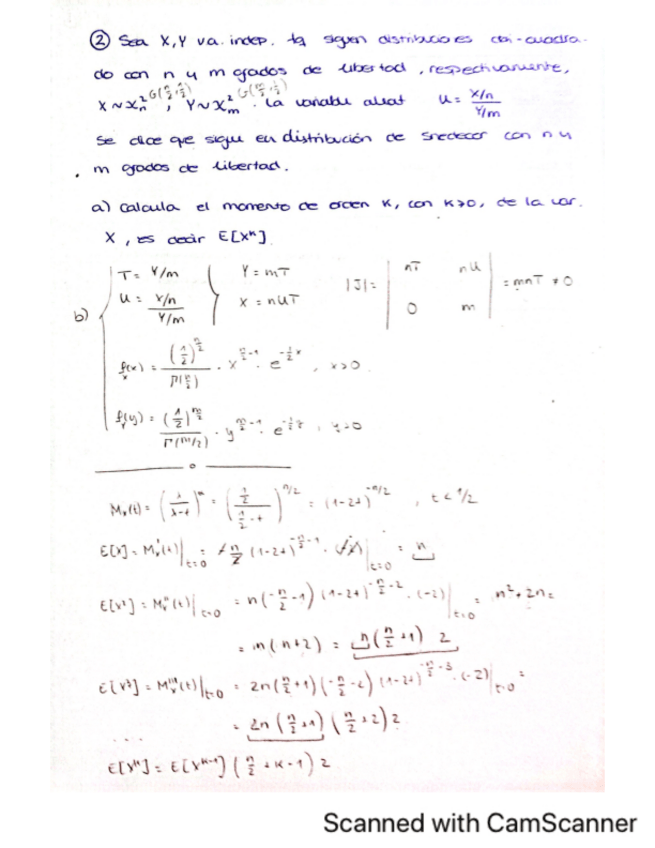 ② Sea X, Y va. indep. tq siguen distribuciones chi-cuadra-
do con n y m grados de libertad, respectivamente,
X ~ χ²ₙ G(n/2, 1/2), Y ~ χ²ₘ G(m/2, 1/2). La variable aleat U = (X/n)/(Y/m)
se dice que sigue en distribución de snedecor con n y
m grados de libertad.
a) calcula el momento de orden K, con K>0, de la var.
X, es decir E[X^K]
b) { T = Y/m } Y = mT |J| = | nT nU | = mnT ≠ 0
U = (X/n)/(Y/m) } X = nUT | 0 m |
f_X(x) = (1/2)^(n/2) / Γ(n/2) · x^(n/2-1) · e^(-1/2 x), x>0
f_Y(y) = (1/2)^(m/2) / Γ(m/2) · y^(m/2-1) ·
M_X(t) = (λ/(λ-t))^n = ((1/2)/(1/2-t))^(n/2) = (1-2t)^(-n/2), t < 1/2
(1-2t)^(-n/2-1) · |t=0 = n
= n(-n/2-1)(1-2t)^(-n/2-2) · (-2)|t=0 = n²+2n =
= n(n+2) = n(n/2+1) 2
= 2n(n/2+1)(-n/2-2)(1-2t)^(-n/2-3) · (-2)|t=0 =
= 2n(n/2+1)(n/2+2)2
...
E[X^K] = E[X^(K-1)] (n/2+K-1) 2
Scanned with CamScanner